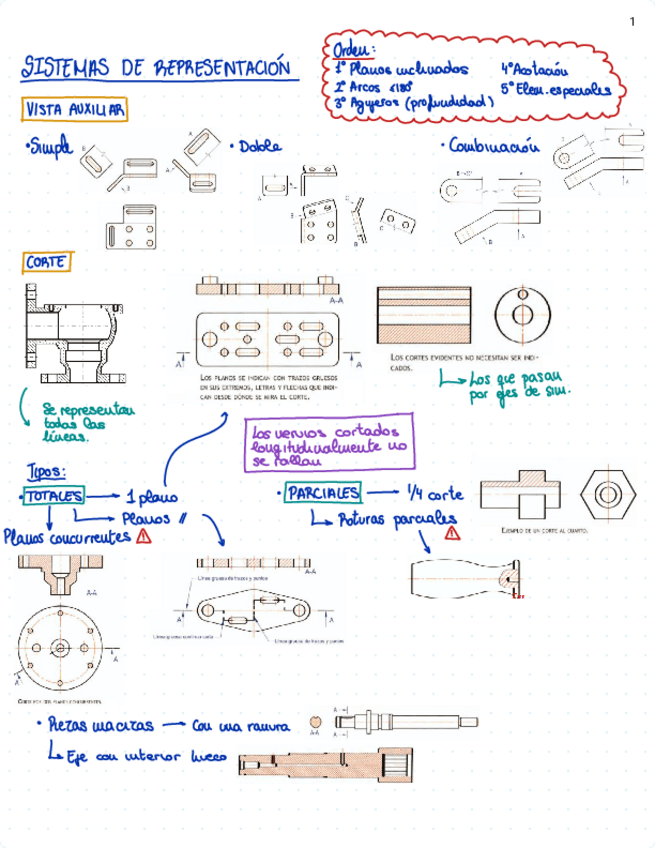 1
SISTEMAS DE REPRESENTACIÓN
Orden:
1º Planos inclinados
2º Arcos <180º
3º Agujeros (profundidad)
4º Acotación
5º Elem. especiales
VISTA AUXILIAR
• Simple
• Doble
• Combinación
CORTE
A-A
LOS PLANOS SE INDICAN CON TRAZOS GRUESOS
EN SUS EXTREMOS, LETRAS Y FLECHAS QUE INDI-
CAN DESDE DÓNDE SE MIRA EL CORTE.
LOS CORTES EVIDENTES NO NECESITAN SER INDI-
CADOS.
Los que pasan
por ejes de sim.
Se representan
todas las
líneas.
Los nervios cortados
longitudinalmente no
se rallan
Tipos:
• TOTALES → 1 plano
Planos //
Planos concurrentes
• PARCIALES → 1/4 corte
Roturas parciales
EJEMPLO DE UN CORTE AL CUARTO.
A-A
A
A
CORTE POR DOS PLANOS CONCURRENTES.
A-A
Línea gruesa de trazos y puntos
A
A
Línea gruesa de trazos y puntos
• Piezas macizas → Con una ranura
Eje con interior hueco
A
A-A
A